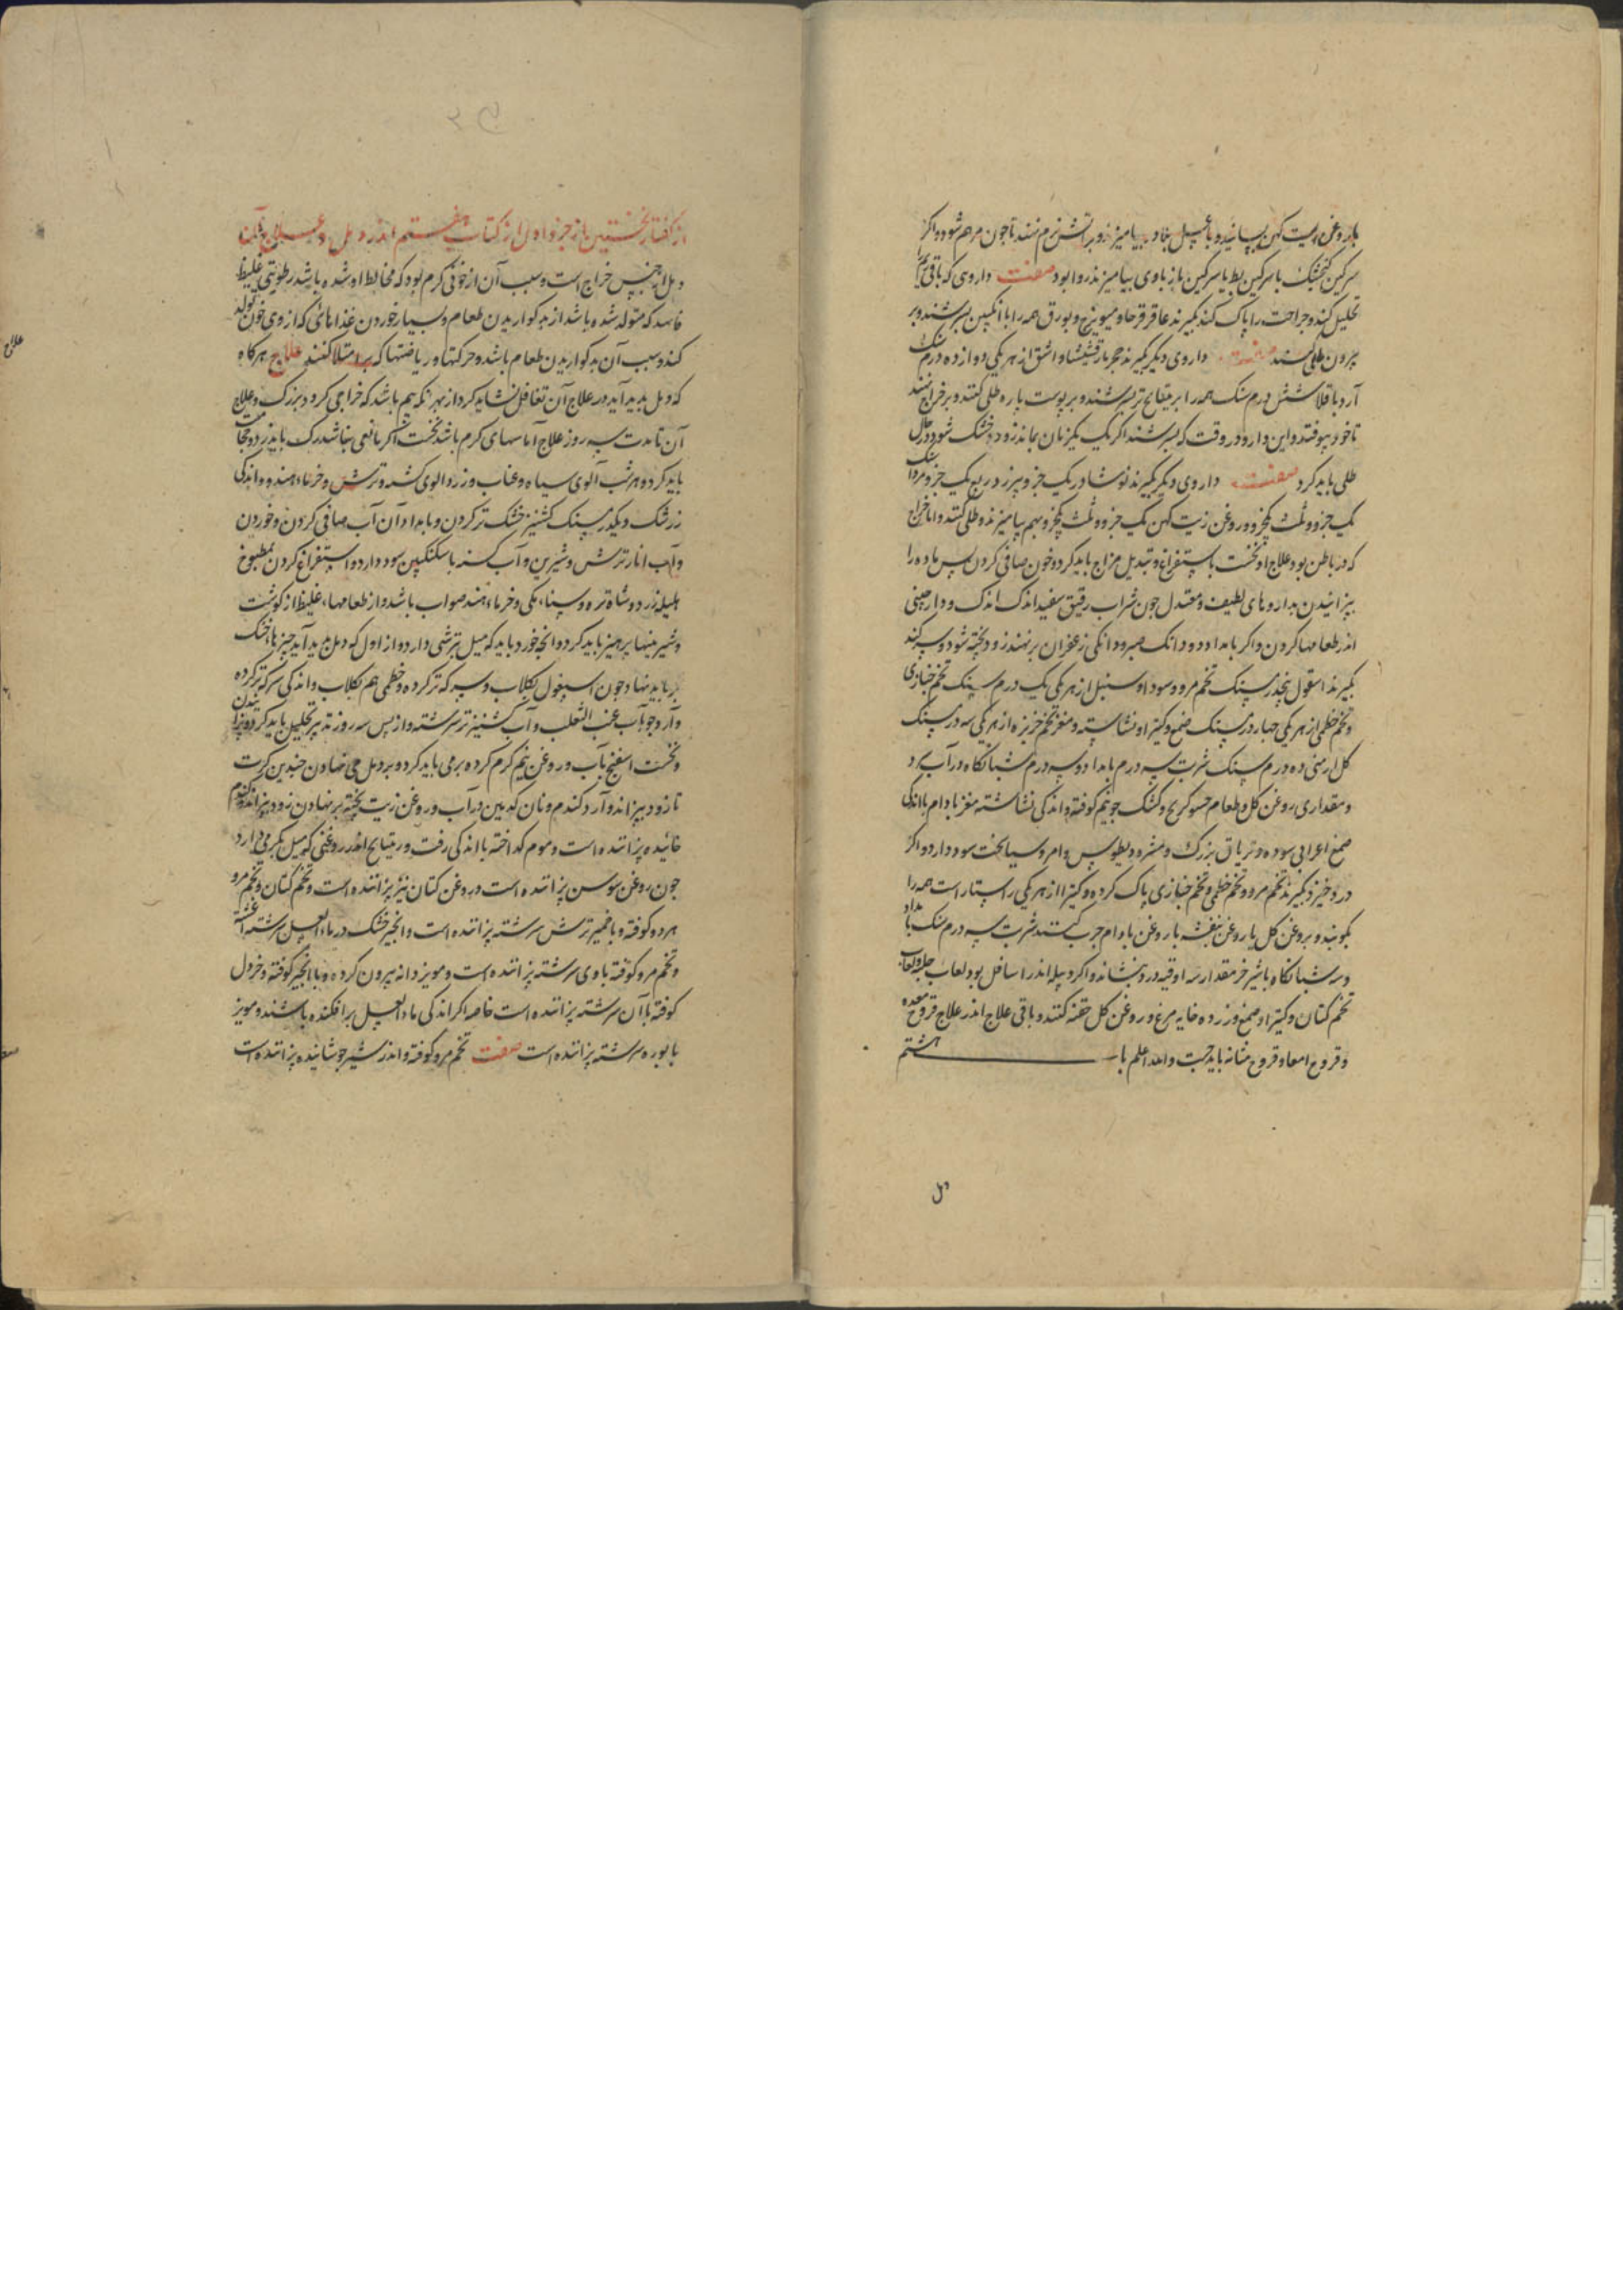 با روغن زیت کهن بسایند و با عسل بهاد بیامیزند و بر آتش نرم نهند تا جون مرهم شود و اکر
سرکین کنجشک با سرکین بط یا سرکین باز با وی بیامیزند روا بود صفت داروی که باقی
تحلیل کند و جراحت را پاک کند بکیرند عاقرقرحا و میویزج و بورق همه را با انکبین بسرشند و بر
برون طلی کنند صفت داروی دیکر بکیرند حجر مارقشیشا و اشق از هر یکی دوازده درم سنک
آرد باقلا شش درم سنک همه را بریتیانج تر بسرشند و بر پوست باره طلی کنند و بر خراج نهند
تا خود بیوفتد و این دارو در وقت که بسرشند اکر یک یکزمان بماند زود خشک شود در حال
طلی باید کرد صفت داروی دیکر بکیرند نوشادر یک جزو بیرزد ربع یک جزو مرداسنک
یک جزو و ثلث یکجزو و روغن زیت کهن یک جزو و ثلث یکجزو بهم بیامیزند و طلی کنند و اما خراج
که در باطن بود علاج او نخست باستفراغ و تبدیل مزاج باید کرد و خون صافی کردن پس ماده را
بپزانیدن بداروهای لطیف و معتدل جون شراب رقیق سفید اندک اندک و دارصینی
اندر طعامها کردن و اکر بامداد دو دانک صبر و دانکی زعفران برنهند زود پخته شود و سر کند
بکیرند اسقول پنجدرمسنک تخم مرو و سوداو سنبل از هر یکی یک درم سنک تخم خبازی
و تخم خطمی از هر یکی جهار درمسنک صمغ و کتیرا و نشاسته و مغز تخم خربزه از هر یکی سه درمسنک
کل ارمنی ده درم سنک شربت سه درم بامداد و سه درم شبانکاه در آب سرد
و مقداری روغن کل و طعام حسو کرنج و کشک جو نیم کوفته و اندکی نشاسته مغز بادام با اندکی
صمغ اعرابی سوده و تریاق بزرک و مثرودیطوس و امروسیا سخت سود دارد و اکر
درد خیزد بکیرند تخم مرو و تخم خطمی و تخم خبازی پاک کرده و کتیرا از هر یکی راستاراست همه را
بکوبند و بروغن کل یا روغن بنفشه یا روغن بادام جرب کنند شربت سه درم سنک بامداد
و سه شبانکاه با شیر خر مقدار سه اوقیه درد بنشاند و اکر دبیله اندر اسافل بود لعاب حلبه و لعاب
تخم کتان و کتیرا و صمغ و زرده خایه مرغ و روغن کل حقنه کنند و باقی علاج اندر علاج قروح معده
و قروح امعا و قروح مثانه باید جست والله اعلم باب هشتم
از کفتار نخستین از جزو اول از کتاب هفتم اندر دمل و علاج آن
دمل از جنس خراج است و سبب آن از خونی کرم بود که مخالط او شده باشد رطوبتی غلیظ
فاسد که متولد شده باشد از بد کواریدن طعام و بسیار خوردن غذاهائی که از وی خون تولد
کند و سبب آن بد کواریدن طعام باشد و حرکتها و ریاضتها که بر امتلا کنند علاج هرکاه
که دمل بدید آید در علاج آن تغافل نشاید کرد از بهر آنکه بیم باشد که خراجی کردد بزرک و علاج
آن تا مدت سه روز علاج آماسهای کرم باشد نخست اکر مانعی نباشد رک باید زد و حجامت
باید کرد و هر شب آلوی سیاه و عناب و زردالوی کشته و ترش و خرماء هندو و اندکی
زرشک و یکدرمسنک کشنیز خشک تر کردن و بامداد آن آب صافی کردن و خوردن
و آب انار ترش و شیرین و آب کسنه با سکنکبین سود دارد و استفراغ کردن بمطبوخ
هلیله زرد و شاه تره و سناء مکی و خرماء هند صواب باشد و از طعامهاء غلیظ از کوشت
و شیرینیها پرهیز باید کرد و آنجه خورد باید که میل بترشی دارد و از اول که دمل بدید آید چیزهاء خنک
بر باید نهاد جون اسپغول بکلاب و سرکه تر کرده و خطمی هم بکلاب و اندکی سرکه تر کرده
و آرد جو بآب عنب الثعلب و آب کشنیز تر سرشته و از پس سه روز تدبیر تحلیل باید کرد و پزانیدن
و نخست اسفنج بآب و روغن نیم کرم کرده برمی باید کرد و بر دمل می نهادن چندین کرت
تا زود بپزاند و آرد کندم و نان کدمین در آب و روغن زیت پخته برنهادن زود بپزاند و کندم
خائیده پزاننده است و موم کداخته با اندکی رفت و ریتیانج اندر روغنی که میل بکرمی دارد
جون روغن سوسن پزاننده است و روغن کتان نیز پزاننده است و تخم کتان و تخم مرو
هردو کوفته و با خمیر ترش سرشته پزاننده است و انجیر خشک در ماء العسل سرشته آغشته
و تخم مرو کوفته با وی سرشته پزاننده است و مویز دانه بیرون کرده و با انجیر کوفته و خردل
کوفته با آن سرشته پزاننده است خاصه اکر اندکی ماء العسل برافکنده باشند و مویز
با بوره سرشته پزاننده است صفت تخم مرو کوفته و اندر شیر جوشانیده پزاننده است
علاج